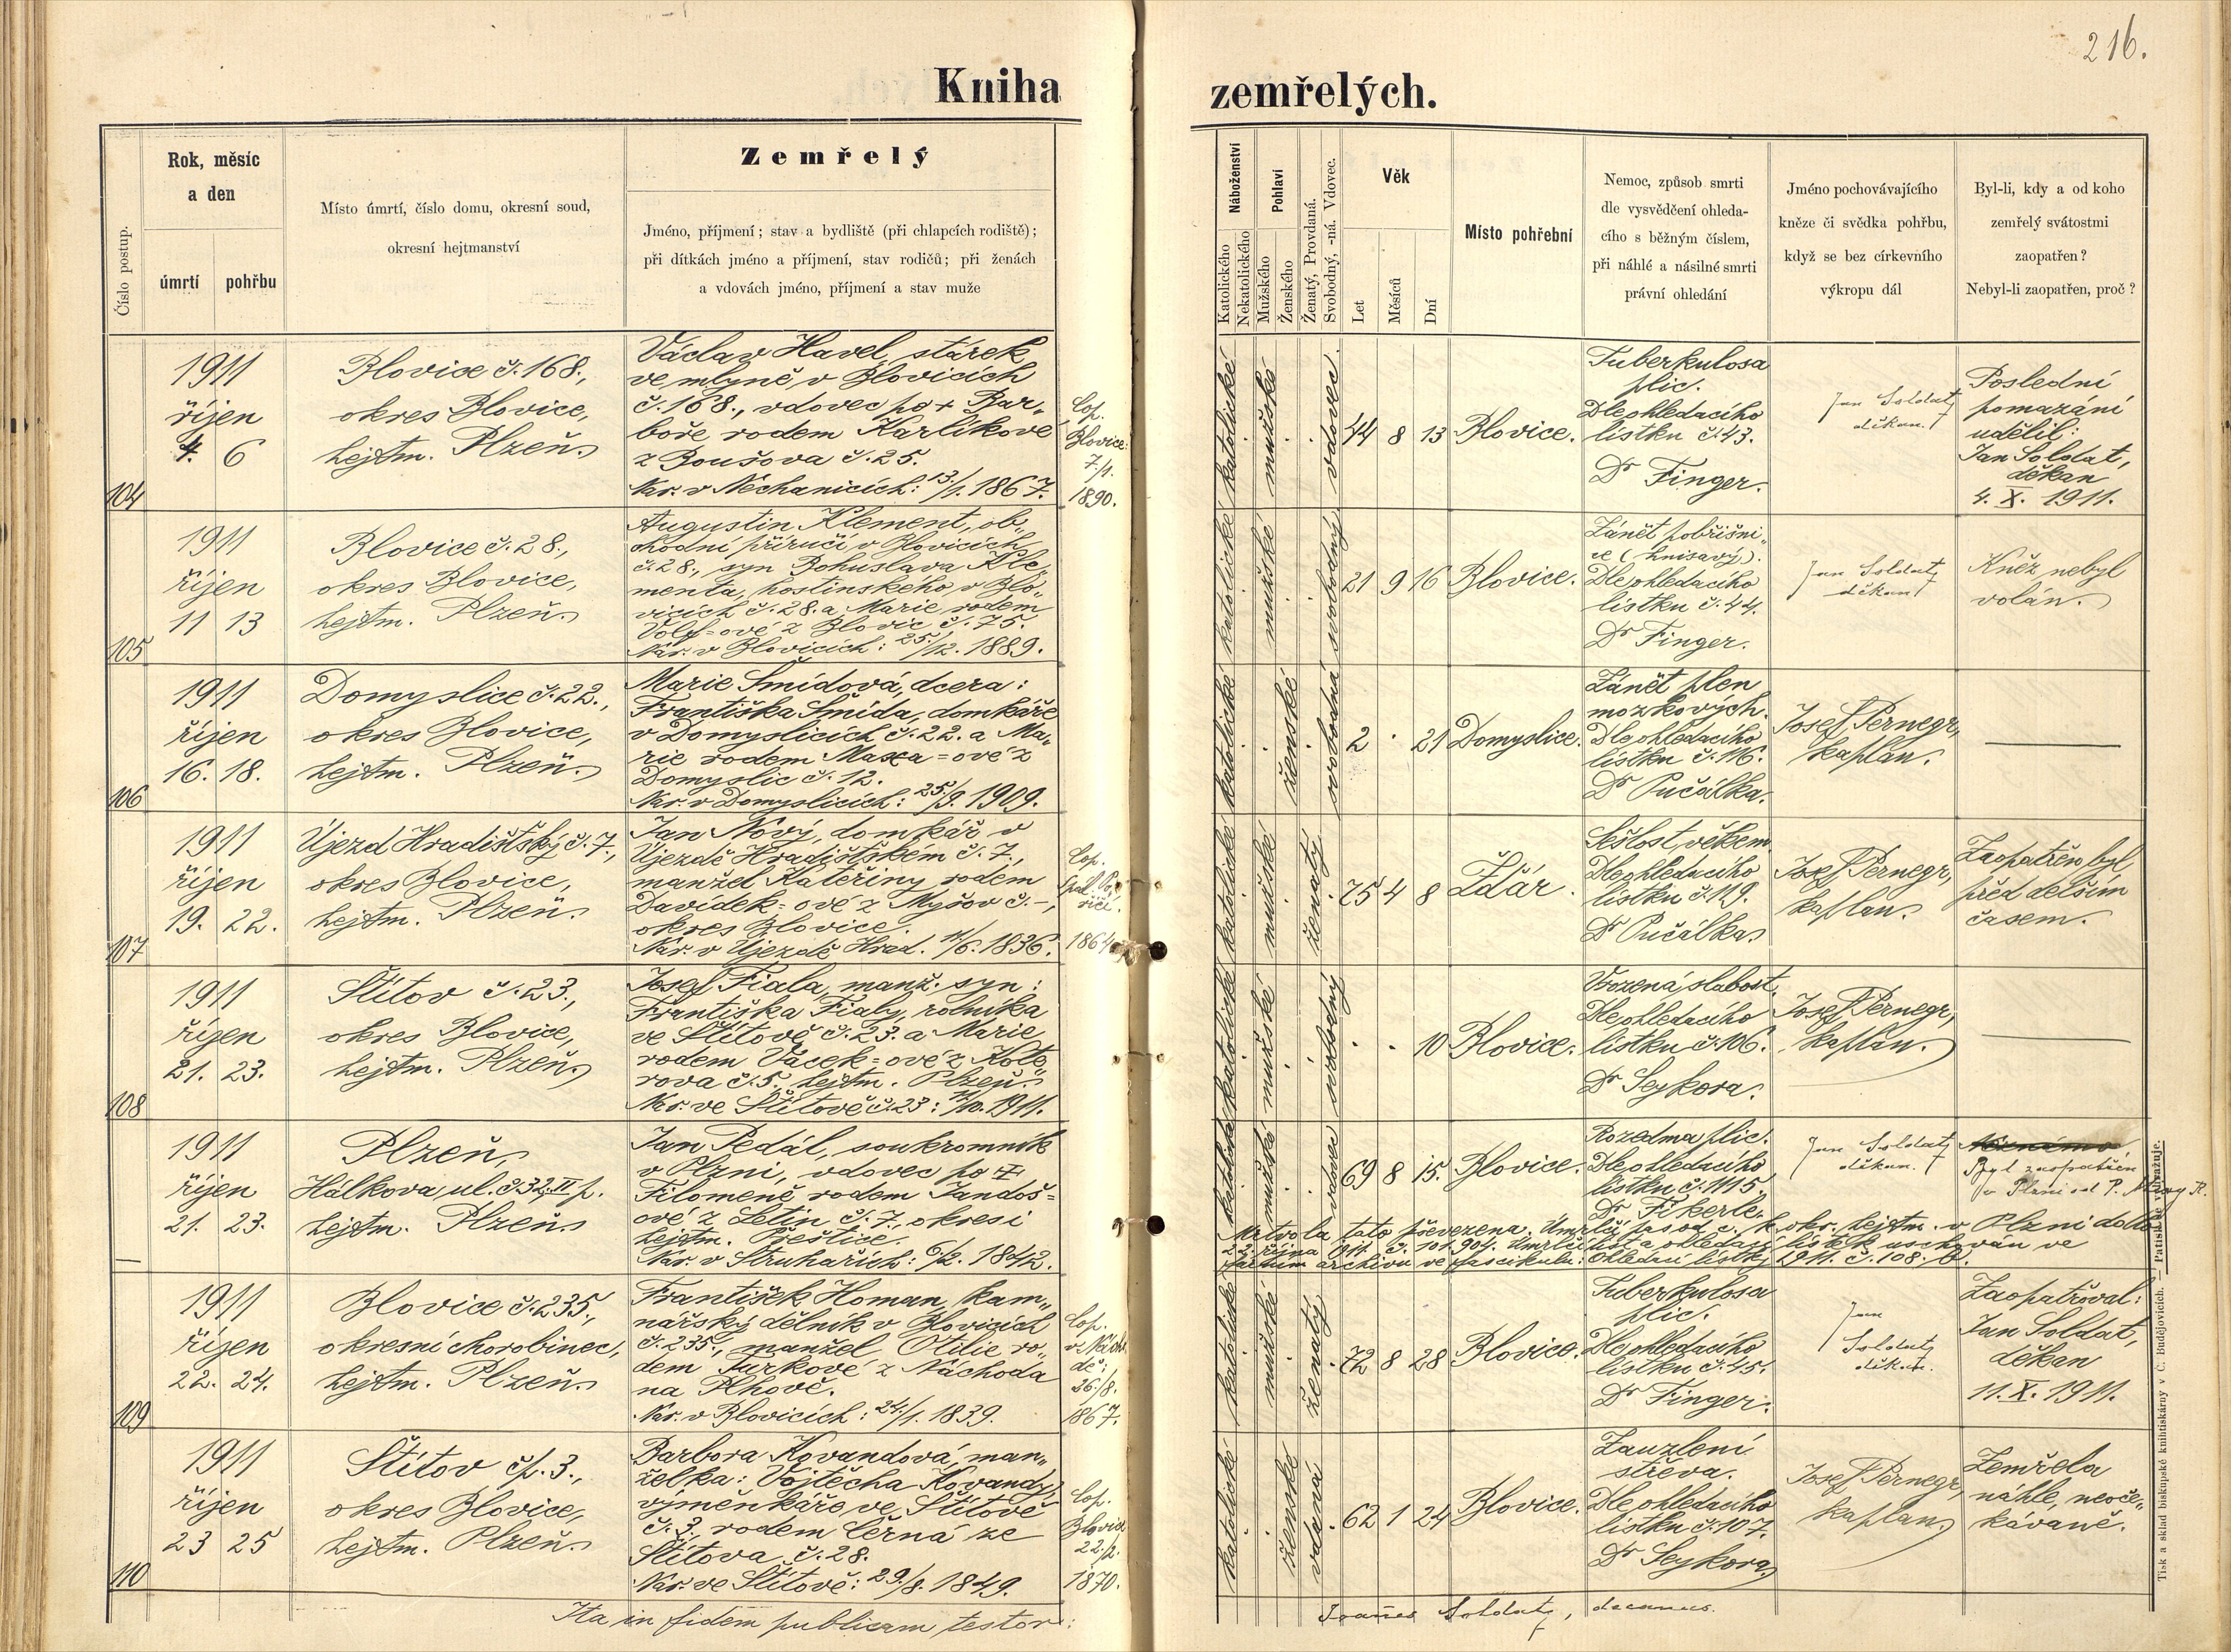 216.
Kniha zemřelých.
Číslo postup.
Rok, měsíc
a den
úmrtí
pohřbu
Místo úmrtí, číslo domu, okresní soud,
okresní hejtmanství
Zemřelý
Jméno, příjmení; stav a bydliště (při chlapcích rodiště);
při dítkách jméno a příjmení, stav rodičů; při ženách
a vdovách jméno, příjmení a stav muže
Náboženství
Katolického
Nekatolického
Pohlaví
Mužského
Ženského
Ženatý, Provdaná.
Svobodný, -ná. Vdovec.
Věk
Let
Měsíců
Dní
Místo pohřební
Nemoc, způsob smrti
dle vysvědčení ohleda-
cího s běžným číslem,
při náhlé a násilné smrti
právní ohledání
Jméno pochovávajícího
kněze či svědka pohřbu,
když se bez církevního
výkropu dál
Byl-li, kdy a od koho
zemřelý svátostmi
zaopatřen?
Nebyl-li zaopatřen, proč?
104
1911
říjen
4. 6
Blovice č. 168.,
okres Blovice,
hejtm. Plzeň.
Václav Havel, stárek
ve mlýně v Blovicích
č. 168., vdovec po + Bar-
boře rodem Karlíkové
z Boušova č. 25.
Nar. v Nechanicích: 13/1. 1867.
Cop.
Blovice:
7/1.
1890.
katolické
mužské
vdovec.
44 8 13
Blovice.
Tuberkulosa
plic.
Dle ohledacího
lístku č. 43.
Dr Finger.
Jan Soldat,
děkan.
Poslední
pomazání
udělil:
Jan Soldat,
děkan
4. X. 1911.
105
1911
říjen
11 13
Blovice č. 28.,
okres Blovice,
hejtm. Plzeň.
Augustin Klement, ob-
chodní příručí v Blovicích
č. 28., syn Bohuslava Kle-
menta, hostinského v Blo-
vicích č. 28. a Marie rodem
Volf=ové z Blovic č. 75.
Nar. v Blovicích: 25./12. 1889.
katolické
mužské
svobodný
21 9 16
Blovice.
Zánět pobřišni-
ce (hnisavý).
Dle ohledacího
lístku č. 44.
Dr Finger.
Jan Soldat,
děkan
Kněz nebyl
volán.
106
1911
říjen
16. 18.
Domyslice č. 22.,
okres Blovice,
hejtm. Plzeň.
Marie Šmídová, dcera:
Františka Šmída, domkáře
v Domyslicích č. 22. a Ma-
rie rodem =ové z
Domyslic č. 12.
Nar. v Domyslicích: 25/9. 1909.
katolické
ženské
svobodná
2 . 21
Domyslice.
Zánět plen
mozkových.
Dle ohledacího
lístku č. 116.
Dr Pučálka.
Josef Pernegr,
kaplan.
107
1911
říjen
19. 22.
Újezd Hradištský č. 7.,
okres Blovice,
hejtm. Plzeň.
Jan Nový, domkář v
Újezdě Hradištském č. 7.,
manžel Kateřiny rodem
Davídek=ové z Myšov č. -,
okres Blovice.
Nar. v Újezdě Hrad. 11/6. 1836.
Cop.
Spál. Po-
říčí.
1864
katolické
mužské
ženatý
75 4 8
Ždár.
Sešlost věkem.
Dle ohledacího
lístku č. 119.
Dr Pučálka.
Josef Pernegr,
kaplan.
Zaopatřen byl
před delším
časem.
108
1911
říjen
21. 23.
Štítov č. 23.,
okres Blovice,
hejtm. Plzeň.
Josef Fiala, manž. syn:
Františka Fialy, rolníka
ve Štítově č. 23. a Marie
rodem Vacek=ové z Koto-
rova č. 5. hejtm. Plzeň.
Nar. ve Štítově č. 23: 11/10. 1911.
katolické
mužské
svobodný
. . 10
Blovice.
Vrozená slabost.
Dle ohledacího
lístku č. 106.
Dr Seykora.
Josef Pernegr,
kaplan.
1911
říjen
21. 23.
Plzeň,
Hálkova ul. č. 32 II p.
hejtm. Plzeň.
Jan Pedál, soukromník
v Plzni, vdovec po +
Filomeně rodem Jandoš=
ové z Letin č. 7., okres i
hejtm. Přeštice.
Nar. v Struhařích: 6./2. 1842.
katolické
mužské
vdovec
69 8 15.
Blovice.
Rozedma plic.
Dle ohledacího
lístku č. 1115
Dr Fikerle.
Jan Soldat,
děkan.
Neznámo
Byl zaopatřen
v Plzni od P.
Mrtvola tato převezena. Úmrlčí pas od c. k. okr. hejtm. v Plzni ddto
22. října 1911. č. 101.904. Úmrlčí list a ohledací lístek uschován ve
farním archivu ve fascikulu: Ohledací lístky 1911. č. 108. b.
109
1911
říjen
22. 24.
Blovice č. 235.,
okresní chorobinec,
hejtm. Plzeň.
František Homan, kam-
nářský dělník v Blovicích
č. 235., manžel Otilie ro-
dem Turkové z Náchoda
na Plhově.
Nar. v Blovicích: 24./1. 1839.
Cop.
v Nácho-
dě:
26./8.
1867.
katolické
mužské
ženatý
72 8 28
Blovice.
Tuberkulosa
plic.
Dle ohledacího
lístku č. 45.
Dr Finger.
Jan
Soldat,
děkan.
Zaopatřoval:
Jan Soldat,
děkan
11. X. 1911.
110
1911
říjen
23 25
Štítov čp. 3.,
okres Blovice,
hejtm. Plzeň.
Barbora Kovandová, man-
želka: Vojtěcha Kovandy,
výměnkáře ve Štítově
č. 3. rodem Černá ze
Štítova č. 28.
Nar. ve Štítově: 29./8. 1849.
Cop.
Blovice
22./2.
1870.
katolické
ženské
vdaná
62 1 24
Blovice.
Zauzlení
střeva.
Dle ohledacího
lístku č. 107.
Dr Seykora,
Josef Pernegr,
kaplan,
Zemřela
náhle, neoče-
kávaně.
Ita in fidem publicam testor: Joañes Soldat, decanus.
Tisk a sklad biskupské knihtiskárny v C. Budějovicích. — Patisk se vyhražuje.